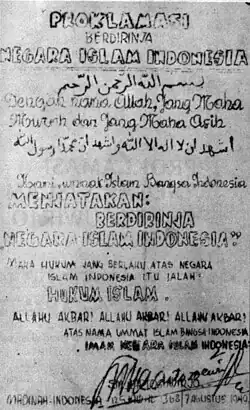 PROKLAMASI
BERDIRINJA
NEGARA ISLAM INDONESIA
بسم الله الرحمن الرحيم
Dengan nama Allah, Jang Maha
Murah dan Jang Maha Asih
اشهد ان لا اله الا الله واشهد ان محمدا رسول الله
Kami, ummat Islam Bangsa Indonesia
MENJATAKAN:
BERDIRINJA
NEGARA ISLAM INDONESIA"
MAKA HUKUM JANG BERLAKU ATAS NEGARA
ISLAM INDONESIA ITU JALAH:
HUKUM ISLAM.
ALLAHU AKBAR! ALLAHU AKBAR! ALLAHU AKBAR!
ATAS NAMA UMMAT ISLAM BANGSA INDONESIA
IMAM NEGARA ISLAM INDONESIA
MADINAH-INDONESIA, 12 1368 7 AGUSTUS 1949